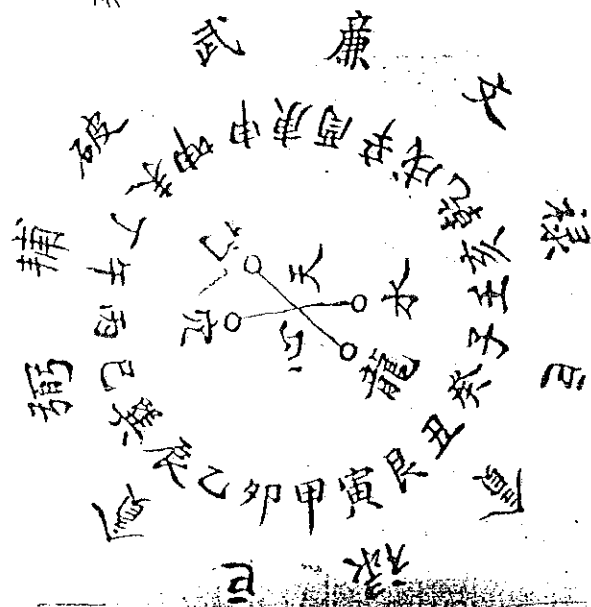 武廉文祿巨貪祿巨貪弼輔破
壬子癸丑艮寅甲卯乙辰巽巳丙午丁未坤申庚酉辛戌乾亥
天心
水
龍
穴